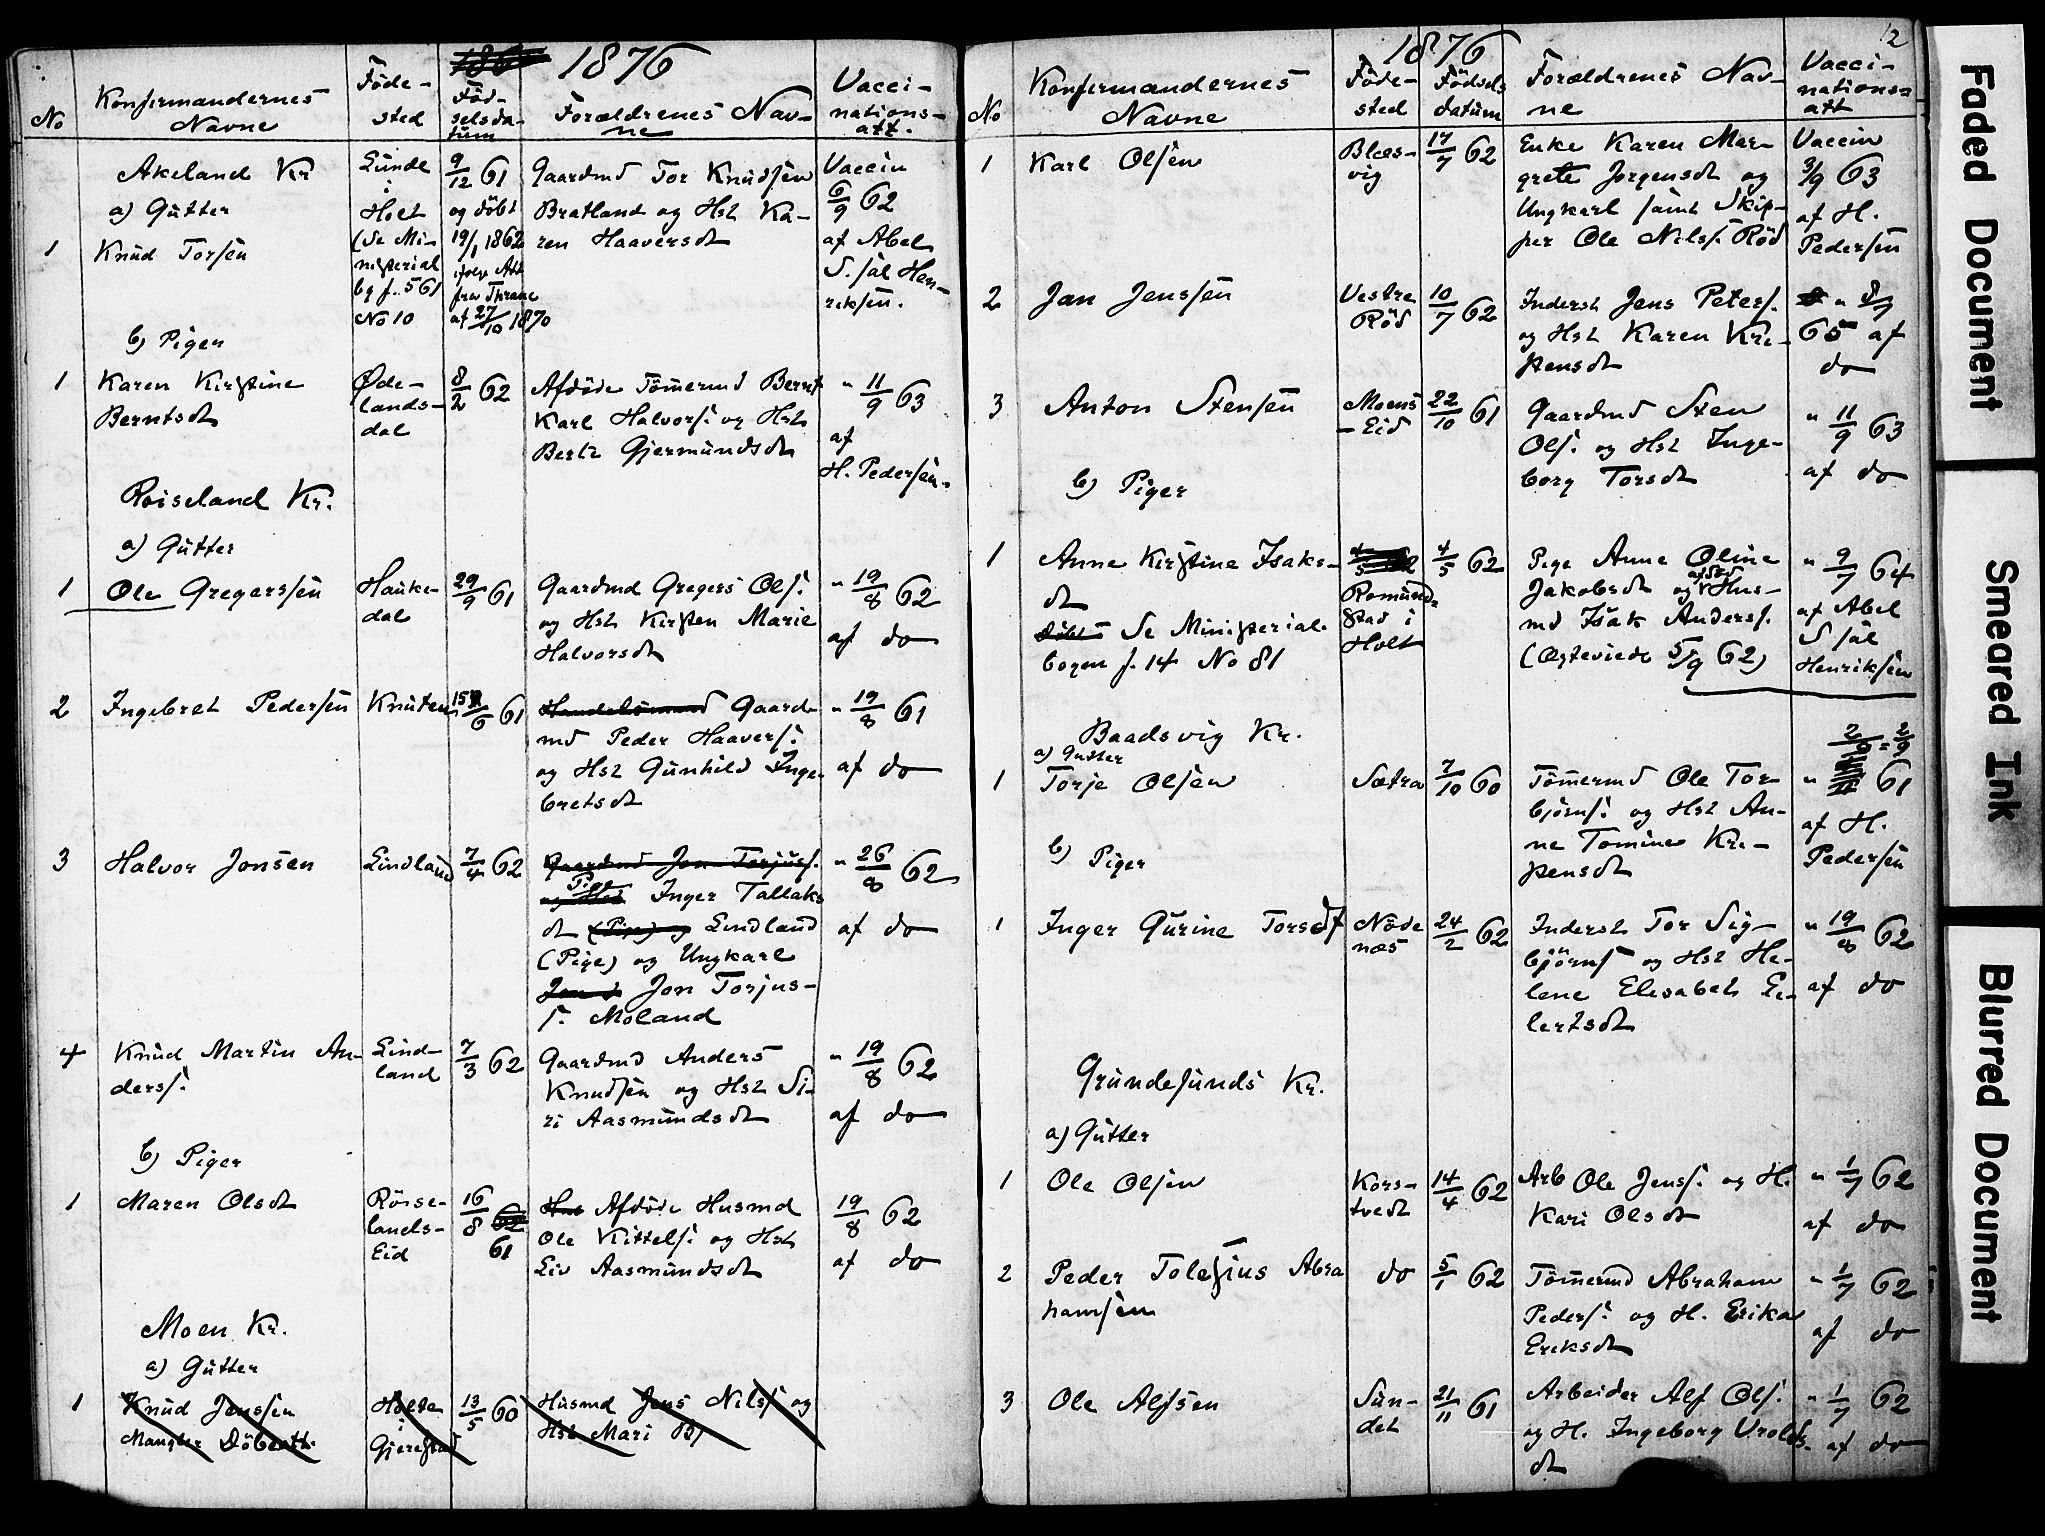 1876
No
Konfirmandernes
Navne
Föde-
sted
Föd-
selsda-
tum
Forældrenes Nav-
ne
Vacci-
nations-
att.
Akeland Kr
a) Gutter
1
Knud Torsen
Lunde
i
Holt
(Se Mi-
nisterial
bg f. 561
No 10
9/12 61
og döbt
19/1 1862
ifölge Att
fra Thrane
af 27/10 1870
Gaardmd Tor Knudsen
Bratland og Hst Ka-
ren Haaversdt
Vaccin
6/9 62
af Abel
S. sal Hen-
riksen.
b) Piger
1
Karen Kirstine
Berntsdt
Øde-
lands-
dal
8/2 62
Afdöde Tömermd Bernt
Karl Halvors. og Hst
Berte Gjermundsdt
" 11/9 63
af
H. Pedersen.
Röiseland Kr.
a) Gutter
1
Ole Gregerssen
Hauke-
dal
29/9 61
Gaardmd Gregers Ols.
og Hst Kirsten Marie
Halvorsdt
" 19/8 62
af do
2
Ingebret Pedersen
Knuten
15/6 61
Handelsmand Gaard-
md Peder Haavers.
og Hst Gunhild Inge-
bretsdt
" 19/8 61
af do
3
Halvor Jonsen
Lindland
7/4 62
Gaardmd Jon Torjuss.
Pige
og Hst Inger Tallaks
dt (Pige) og Lindland
(Pige) og Ungkarl
Jon Torjus-
s. Moland
" 26/8 62
af do
4
Knud Martin An-
ders.
Lind-
land
7/3 62
Gaardmd Anders
Knudsen og Hst Si-
ri Aasmundsdt
" 19/8 62
af do
b) Piger
1
Maren Olsdt
Röise-
lands-
Eid
16/8 62
61
Hus Afdöde Husmd
Ole Kittels. og Hst
Liv Aasmundsdt
19/8 62
af do
Moen Kr.
a) Gutter
1
Knud Jenssen
Mangler Döbeatt.
Holte
i
Gjerestad
13/5 60
Husmd Jens Nils. og
Hst Mari
12
1876
No
Konfirmandernes
Navne
Föde-
sted
Födsels
datum
Forældrenes Nav-
ne
Vacci-
nations=
att
1
Karl Olsen
Blæs-
vig
17/7 62
Enke Karen Mar-
grete Jørgensdt og
Ungkarl samt Skip-
per Ole Nilss. Röd
Vaccin
3/9 63
af H.
Pedersen
2
Jan Jenssen
Vestre
Röd
10/7 62
Inderst Jens Peters.
og Hst Karen Kri-
stensdt
" 8/7
65 af
do
3
Anton Stensen
Moens
-Eid
22/10 61
Gaardmd Sten
Ols. og Hst Inge-
borg Torsdt
" 11/9 63
af do
b) Piger
1
Anne Kirstine Isaks-
dt
döbt Se Ministerial-
bogen f. 14 No 81
Romund-
stad i
Holt
4/5 62
Pige Anne Oline
afdöd
Jakobsdt og Hus-
md Isak Anders.
(Ægteviede 5/9 62)
" 9/7 64
af Abel
S sal
Henriksen
Baadsvig Kr.
a) Gutter
1
Torje Olsen
Sætra
7/10 60
Tömermd Ole Tor-
björns. og Hst An-
ne Tomine Kri-
stensdt
2/9 = 2/9
" 61
af H.
Pedersen
b) Piger
1
Inger Gurine Torsdt
Nöde
næs
24/2 62
Inderst Tor Sig-
björns og Hst He-
lene Elesabet Ei-
lertsdt
" 19/8 62
af do
Grundesunds Kr.
a) Gutter
1
Ole Olsen
Kors-
tvedt
14/4 62
Arb Ole Jenss. og H.
Kari Olsdt
" 1/7 62
af do
2
Peder Tolesius Abra
hamsen
do
5/1 62
Tömermd Abraham
Peders. og H. Erika
Eriksdt
" 1/7 62
af do
3
Ole Alfsen
Sun-
det
21/11 61
Arbeider Alf Ols.
og H. Ingeborg Urolds-
dt
" 1/7 62
af do
Faded Document
Smeared Ink
Blurred Document